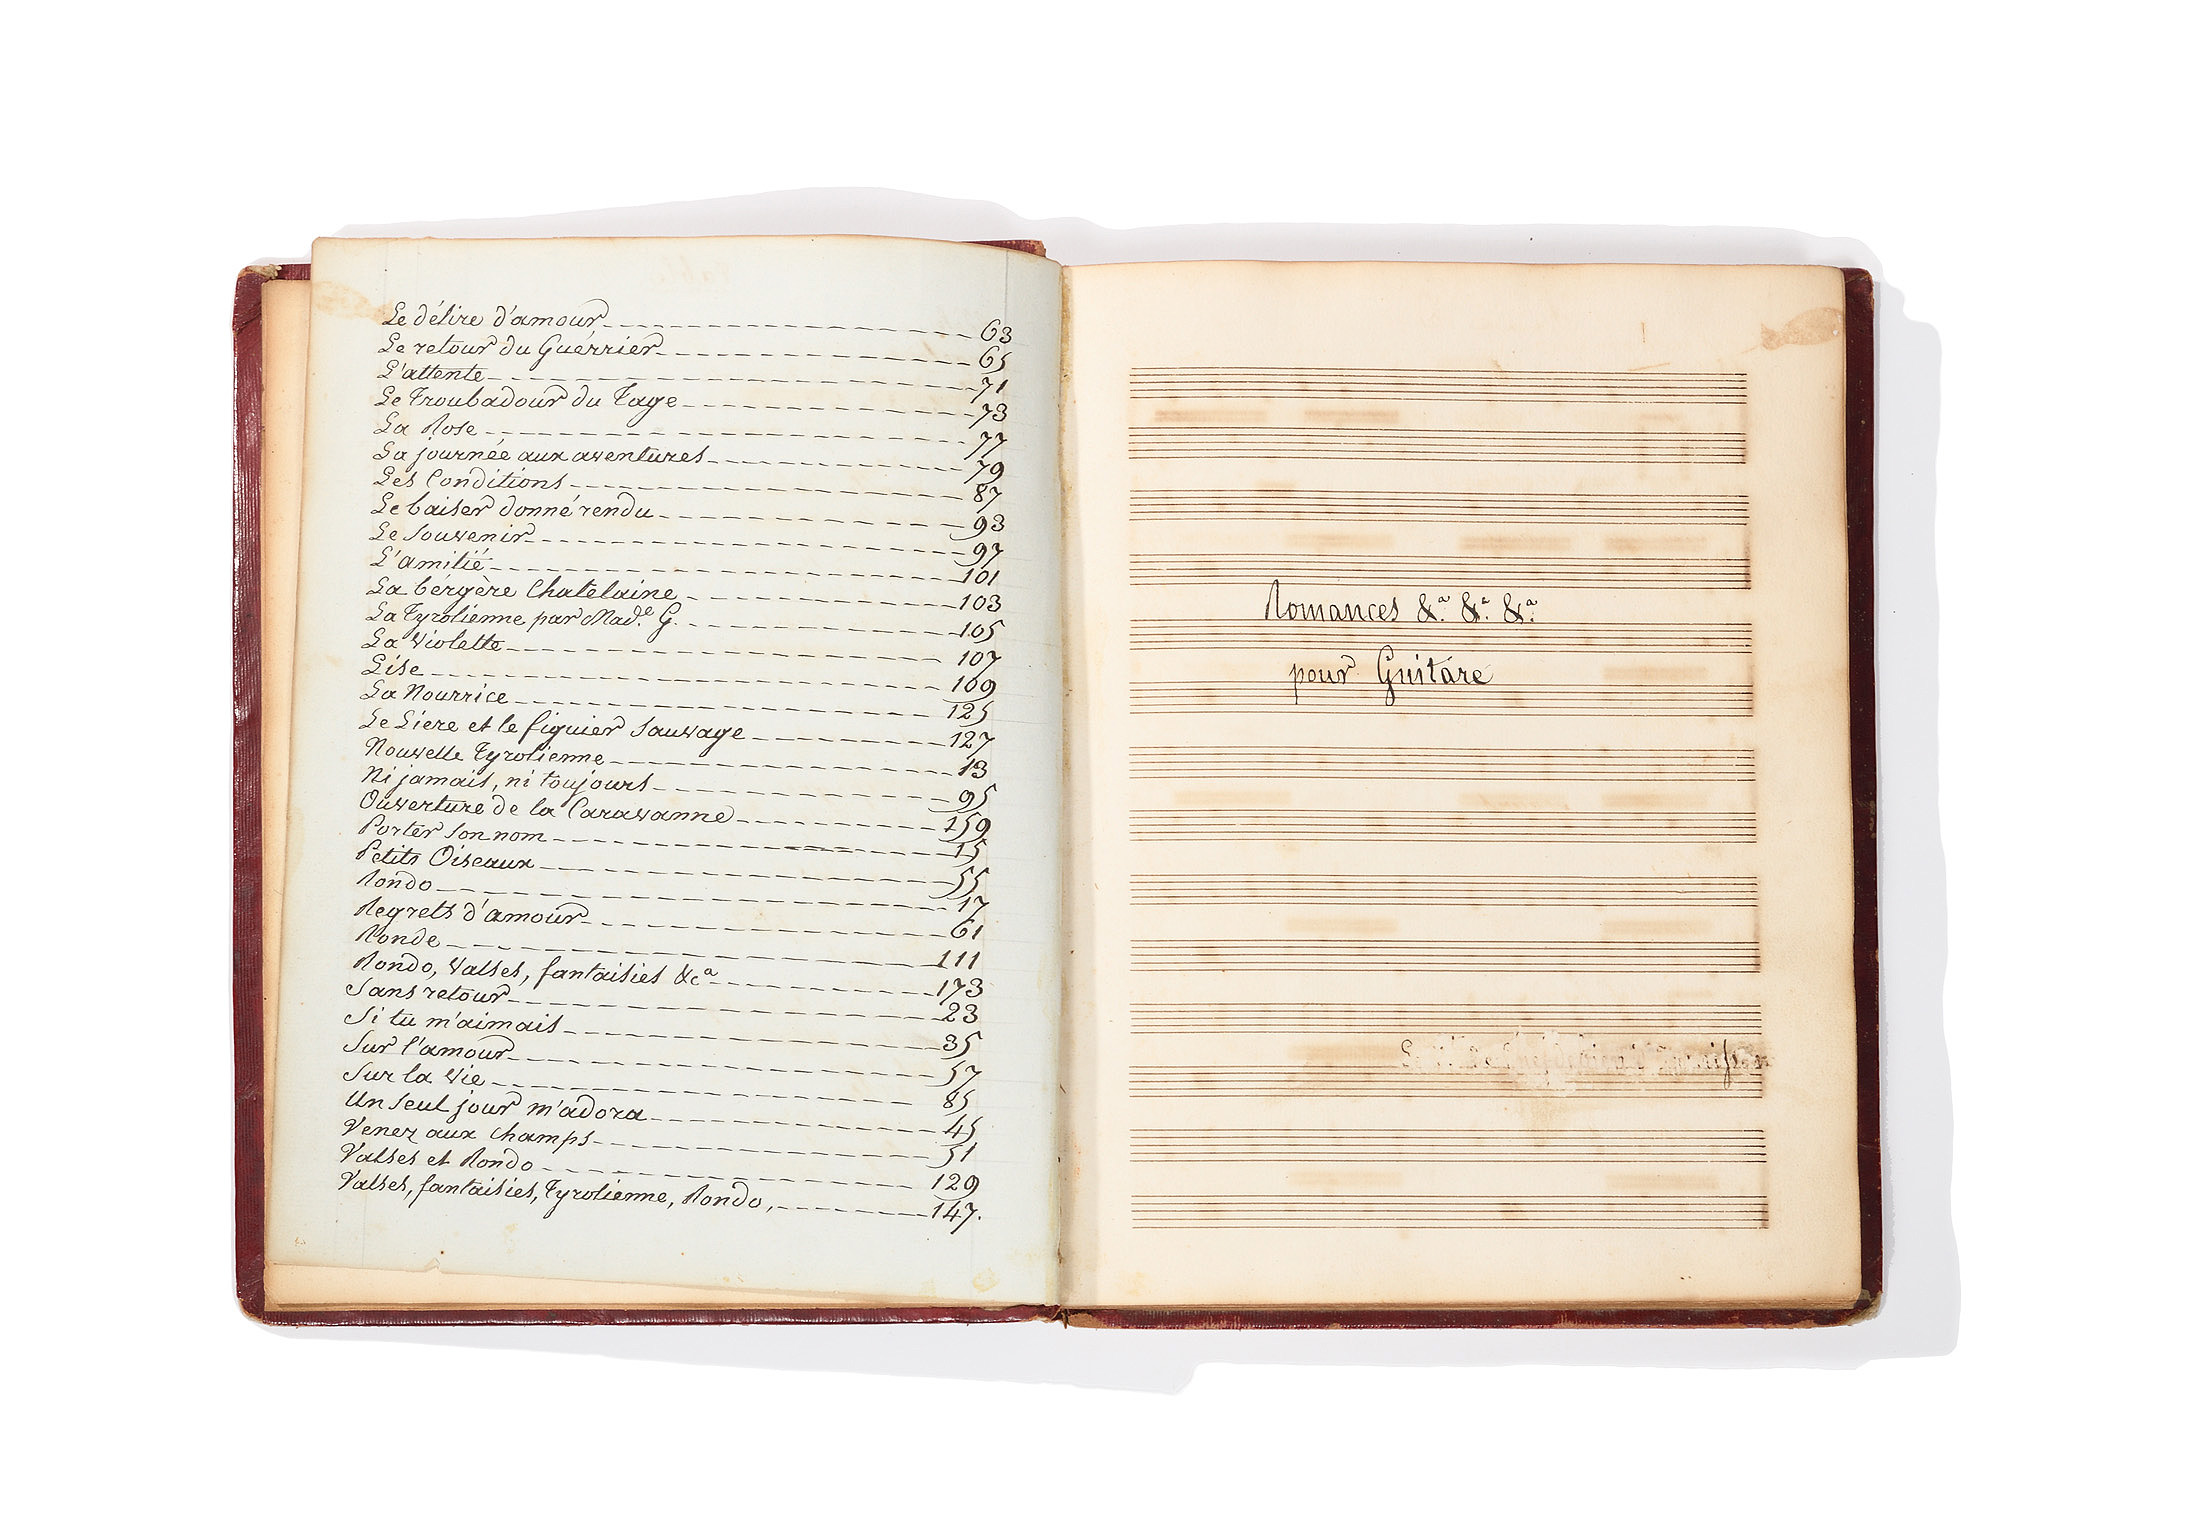 Le délire d'amour 63
Le retour du Guérrier 65
L'attente 71
Le Troubadour du Tage 73
La Rose 77
La journée aux aventures 79
Les Conditions 87
Le baiser donné rendu 93
Le Souvenir 97
L'amitié 101
La bérgère Chatelaine 103
La Tyrolienne par Mad.e G. 105
La Violette 107
Lise 109
La Nourrice 125
Le Liere et le figuier Sauvage 127
Nouvelle Tyrolienne 13
Ni jamais, ni toujours 95
Ouverture de la Caravanne 159
Porter Son nom 15
Petits Oiseaux 55
Rondo 17
Regrets d'amour 61
Ronde 111
Rondo, Valses, fantaisies &c.a 173
Sans retour 23
Si tu m'aimais 35
Sur l'amour 57
Sur la Vie 85
Un Seul jour m'adora 45
Venez aux Champs 51
Valses et Rondo 129
Valses, fantaisies, Tyrolienne, Rondo, 147.
Romances &.a &.a &.a
pour Guitare